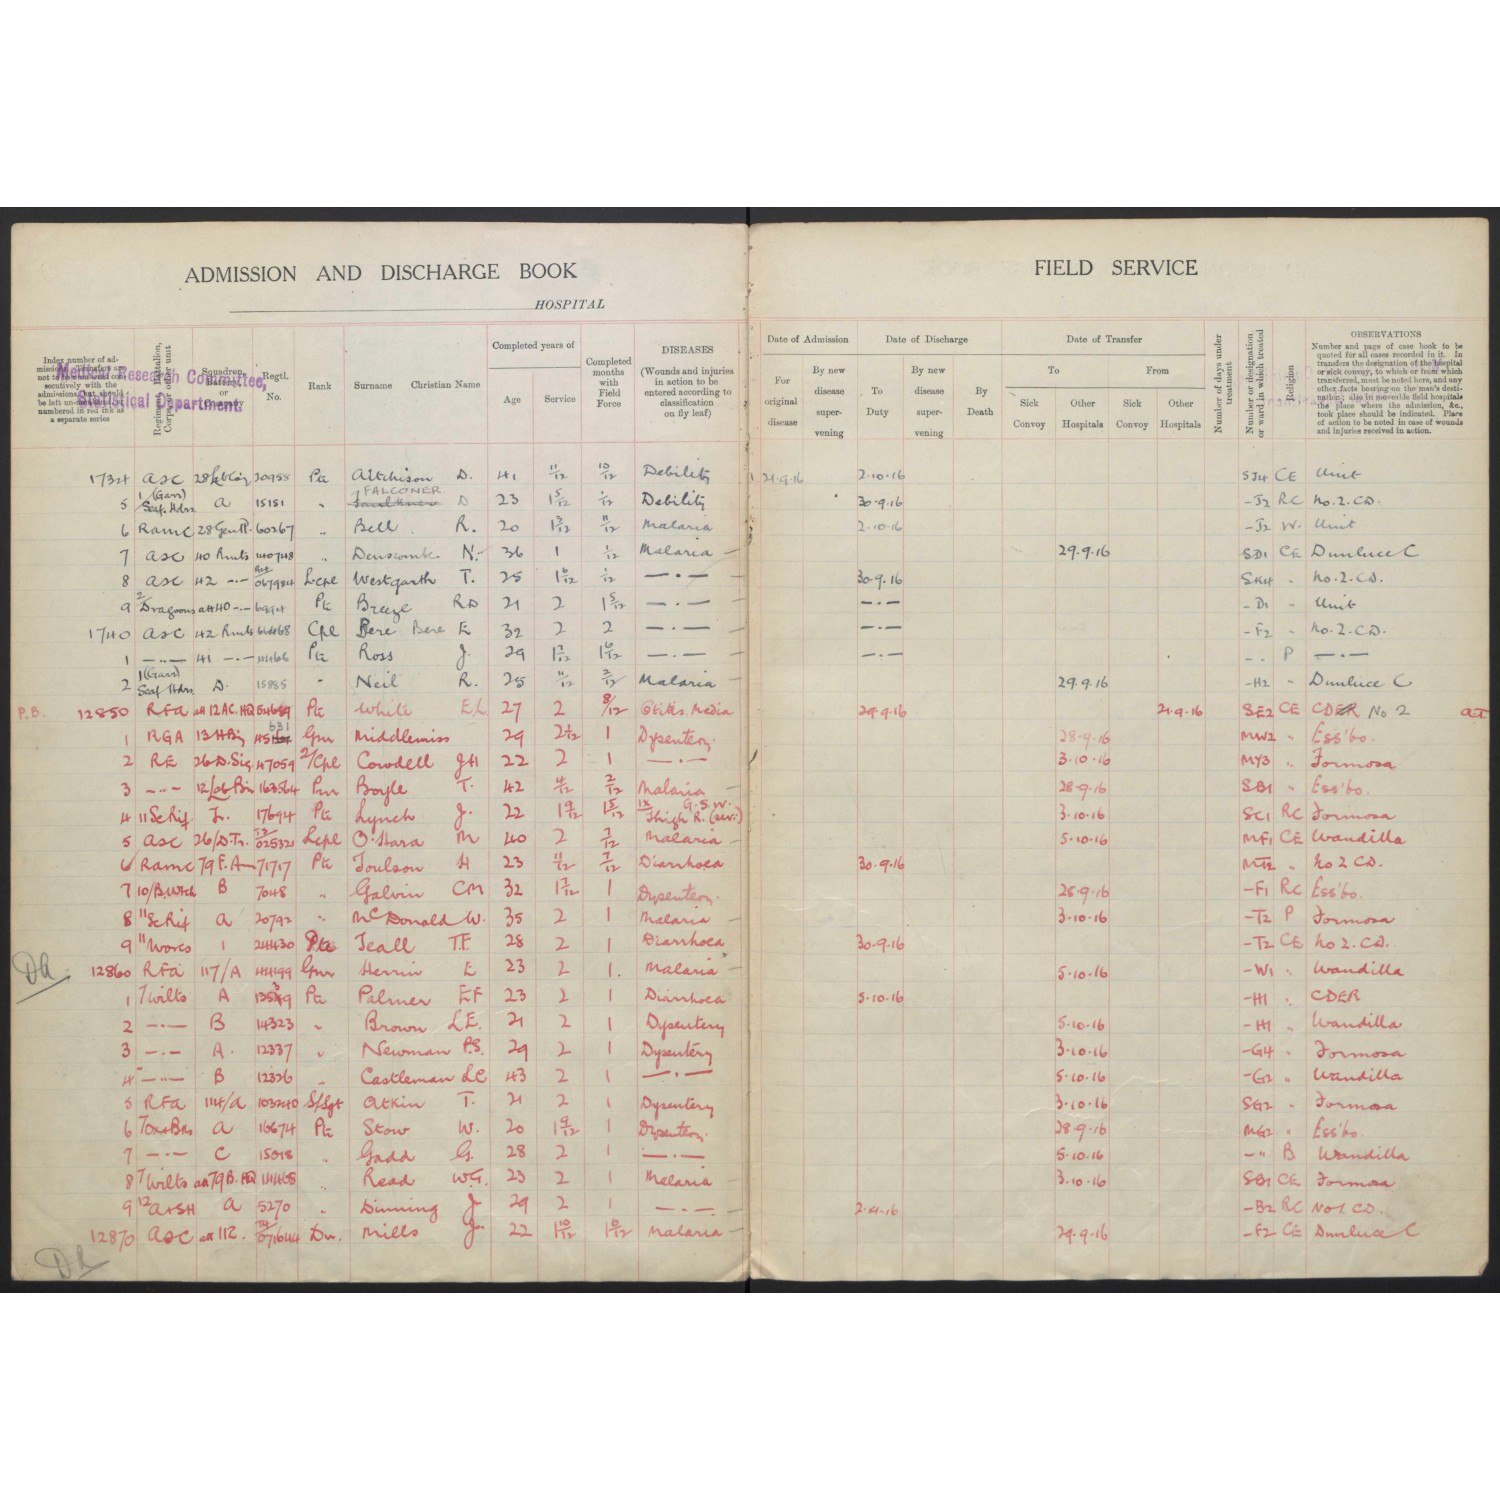 ADMISSION AND DISCHARGE BOOK
HOSPITAL
FIELD SERVICE
Index number of admissions. Transfers are not to be numbered consecutively with the admissions, but should be left un-numbered or numbered in red ink as a separate series
Medical Research Committee,
Statistical Department.
Regiment, Battalion, Corps or other unit
Squadron, Battery or Company
Regtl. No.
Rank
Surname Christian Name
Completed years of
Age Service
Completed months with Field Force
DISEASES
(Wounds and injuries in action to be entered according to classification on fly leaf)
Date of Admission
For original disease
By new disease supervening
Date of Discharge
To Duty
By new disease supervening
By Death
Date of Transfer
To From
Sick Convoy Other Hospitals Sick Convoy Other Hospitals
Number of days under treatment
Number or designation or ward in which treated
Religion
OBSERVATIONS
Number and page of case book to be quoted for all cases recorded in it. In transfers the designation of the hospital or sick convoy, to which or from which transferred, must be noted here, and any other facts bearing on the man's destination; also in movable field hospitals the place where the admission, &c., took place should be indicated. Place of action to be noted in case of wounds and injuries received in action.
17324 ASC 20958 Pte Aitchison D. 41 11/12 10/12 Debility 21-9-16 2-10-16 SJ4 CE Unit
5 1 (Garr) Seaf. Hdrs A 15151 " Faulkner FALCONER D 23 1 5/12 Debility 30-9-16 -J2 RC No.2.CD.
6 RAMC 28 Genl H. 60267 " Bell R. 20 11/12 Malaria 2-10-16 -J2 W. Unit
7 ASC 40 Rmts " N. 36 1 Malaria 29.9.16 SD1 CE Dunluce C
8 ASC 42 -"- Lcpl Westgarth T. 25 —.— 30-9-16 SK4 " No.2.CD.
9 2/Dragoons att 40 -"- Pte Breeze RD 21 2 1 5/12 —.— —.— -D1 " Unit
1740 ASC 42 Rmts Cpl Bere Bere E 32 2 2 —.— —.— -F2 " No.2.CD.
1 —"— 41 -"- Pte Ross J. 29 —.— —.— P —.—
2 1 (Garr) Seaf Hdrs D. 15885 " Neil R. 25 11/12 Malaria 29.9.16 -H2 " Dunluce C
P.B. 12850 RFA att 12 A.C. HQ Pte White E.L 27 2 8/12 Otitis. Media 29-9-16 21-9-16 SE2 CE CDER No 2 a.T.
1 RGA 13 H By 631 Gnr Middlemiss 29 1 Dysentery. 28-9-16 MW2 " Ess'bo.
2 RE 26 D. Sig. 47059 2/Cpl Cowdell JH 22 2 1 —.— 3-10-16 MY3 " Formosa
3 —"— 12/Lab Bn 163564 Pnr Boyle T. 42 Malaria 28-9-16 SB1 " Ess'bo.
4 11 Sc Rif 17694 Pte Lynch J. 22 1 9/12 1 5/12 IX G.S.W. Thigh R. (sev.) 3-10-16 SC1 RC Formosa
5 ASC 26/D.Tr. T3/025321 Lcpl O'Hara M 40 2 Malaria 5-10-16 MF1 CE Wandilla
6 RAMC 79 F.A 71717 Pte Toulson H 23 11/12 Diarrhoea 30.9-16 " No 2 CD.
7 10/B.Wtch B 7048 " Galvin CM 32 1 Dysentery. 28-9-16 -F1 RC Ess'bo.
8 11 Sc Rif A 20792 " McDonald W. 35 2 1 Malaria 3-10-16 -T2 P Formosa
9 11 Worcs 1 24430 Pte Teall T.F. 28 2 1 Diarrhoea 30-9-16 -T2 CE No 2. CD.
DR 12860 RFA 117/A 44199 Gnr Herrin E 23 2 1. Malaria 5-10-16 -W1 " Wandilla
1 7 Wilts A Pte Palmer EF 23 2 1 Diarrhoea 5-10-16 -H1 " CDER
2 —.— B 14323 " Brown L.E. 21 2 1 Dysentery 5-10-16 -H1 " Wandilla
3 —.— A. 12337 " Newman P.S. 29 2 1 Dysentery 3-10-16 -G4 " Formosa
4 —"— B 12326 " Castleman LC 43 2 1 —.— 5-10-16 -G2 " Wandilla
5 RFA 114/A 103240 S/Sgt Atkin T. 21 2 1 Dysentery 3-10-16 SG2 " Formosa
6 7 Ox & Bks A 16674 Pte Stow W. 20 1 9/12 1 Dysentery. 28-9-16 MG2 " Ess'bo.
7 —.— C 15018 " Gadd G. 28 2 1 —.— 5-10-16 -" B Wandilla
8 7 Wilts att 79 B. HQ 14468 " Read W.G. 23 2 1 Malaria 3-10-16 SB1 CE Formosa
9 12 A & SH A 5270 " Dinning J 29 2 1 —.— -B2 RC No 1. CD.
12870 ASC att 112. T4/071644 Dvr. Mills J. 22 1 10/12 Malaria 29-9-16 -F2 CE Dunluce C
DR